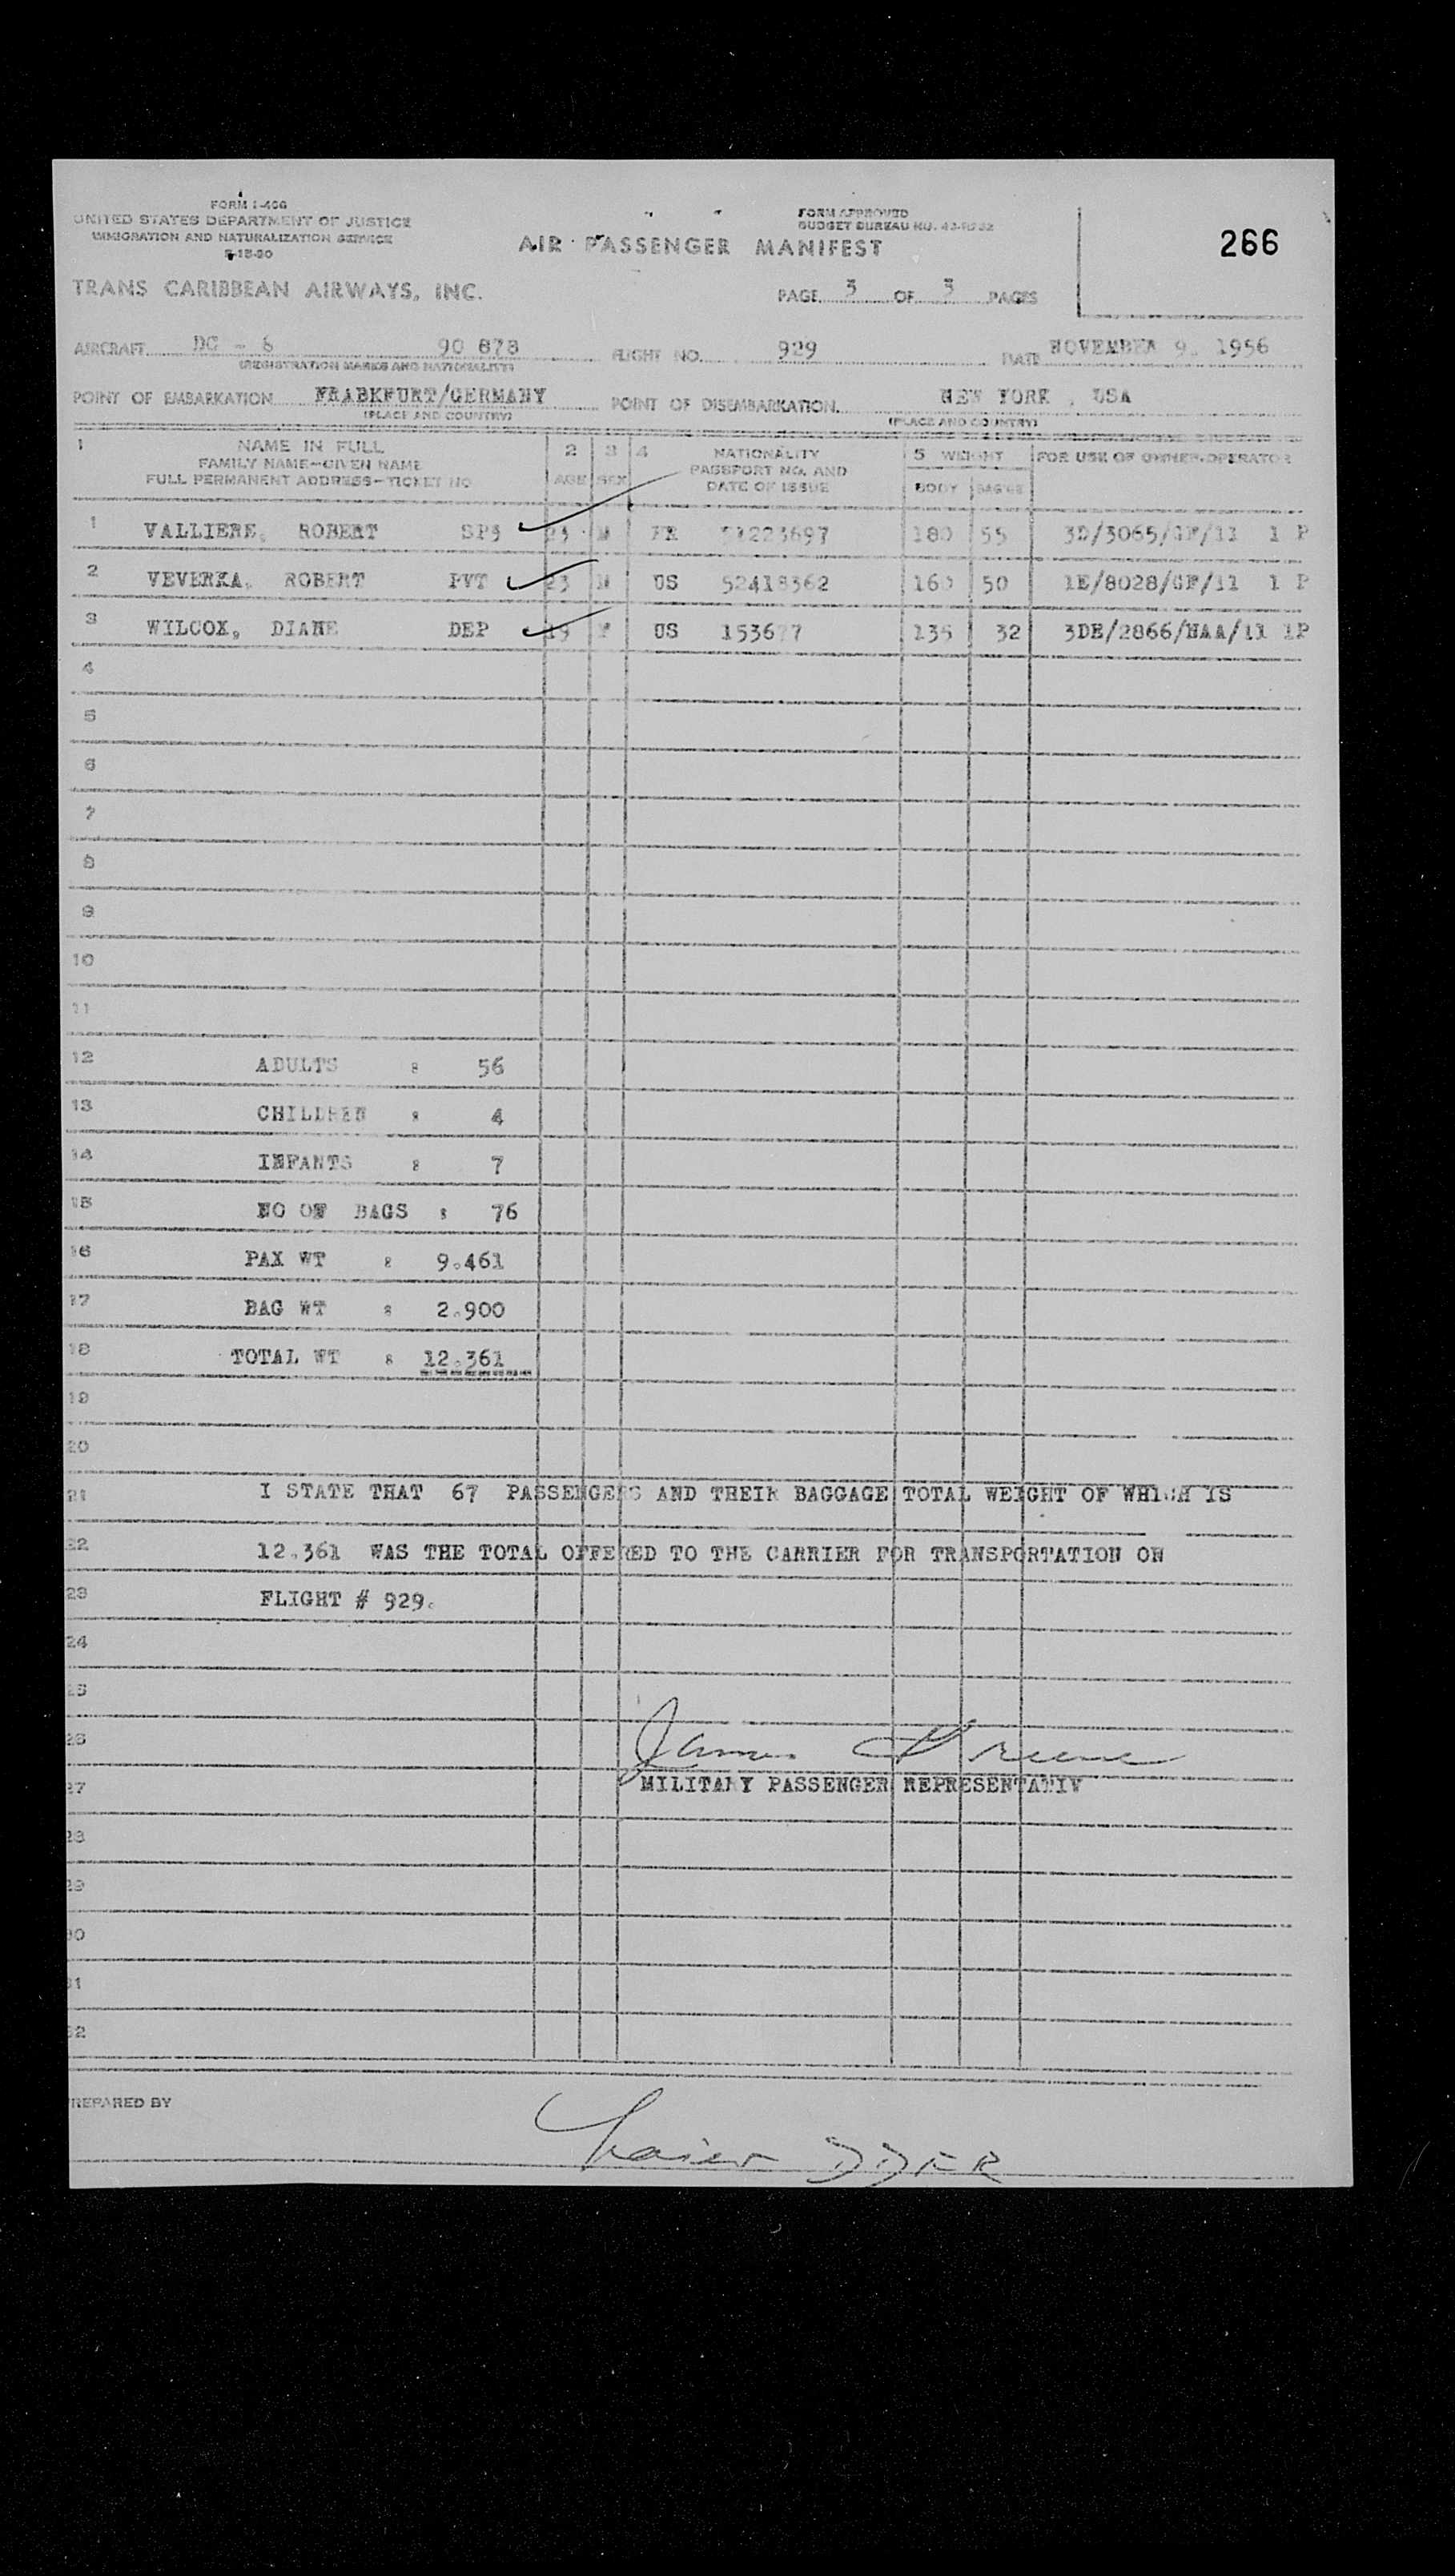 FORM I-466
UNITED STATES DEPARTMENT OF JUSTICE
IMMIGRATION AND NATURALIZATION SERVICE
FORM APPROVED
BUDGET BUREAU NO.
AIR PASSENGER MANIFEST
266
TRANS CARIBBEAN AIRWAYS, INC.
PAGE 3 OF 3 PAGES
AIRCRAFT DC - 6 90 878 FLIGHT NO. 929 DATE NOVEMBER 9. 1956
(REGISTRATION MARKS AND NATIONALITY)
POINT OF EMBARKATION FRABKFURT/GERMANY POINT OF DISEMBARKATION NEW YORK , USA
(PLACE AND COUNTRY) (PLACE AND COUNTRY)
1 NAME IN FULL 2 3 4 NATIONALITY 5 WEIGHT FOR USE OF OWNER-OPERATOR
FAMILY NAME—GIVEN NAME PASSPORT NO. AND
FULL PERMANENT ADDRESS—TICKET NO AGE SEX DATE OF ISSUE BODY BAG'GE
1 VALLIERE, ROBERT SP3 23 M FR 51223697 180 55 3D/3065/GF/11 1 P
2 VEVERKA, ROBERT PVT 23 M US 52418362 160 50 1E/8028/GF/11 1 P
3 WILCOX, DIANE DEP 19 F US 153677 135 32 3DE/2866/NAA/11 1P
4
5
6
7
8
9
10
11
12 ADULTS : 56
13 CHILDREN : 4
14 INFANTS : 7
15 NO OW BAGS : 76
16 PAX WT : 9.461
17 BAG WT : 2.900
18 TOTAL WT : 12.361
19
20
21 I STATE THAT 67 PASSENGERS AND THEIR BAGGAGE TOTAL WEIGHT OF WHICH IS
22 12.361 WAS THE TOTAL OFFERED TO THE CARRIER FOR TRANSPORTATION ON
23 FLIGHT # 929.
24
25
26 James Greene
27 MILITARY PASSENGER REPRESENTATIV
28
29
30
31
32
PREPARED BY